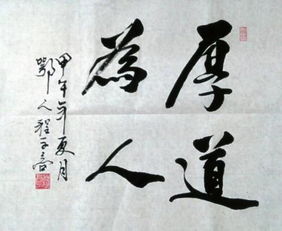 厚道
為人
甲午年夏月
鄂人程子容